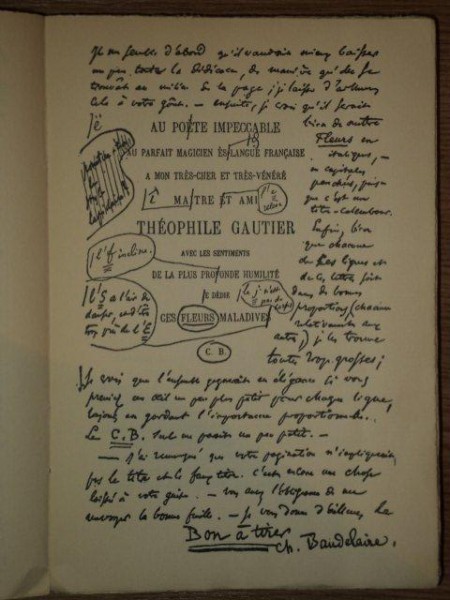 Il me semble d'abord qu'il vaudrait mieux baisser
un peu toute la dédicace, de manière qu'elle se
trouvât au milieu de la page ; je laisse d'ailleurs
cela à votre goût. — ensuite, je crois qu'il serait
bien de mettre
Fleurs en
italiques, —
en capitales
penchées, puis
que c'est un
titre-calembour.
Enfin, bien
que chacune
de ces lignes et
de ces lettres soit
dans de bonnes
proportions (chacune
relativement aux
autres), je les trouve
toutes trop grosses ;
ë
AU POÈTE IMPECCABLE
AU PARFAIT MAGICIEN ÈS LANGUE FRANÇAISE
A MON TRÈS-CHER ET TRÈS-VÉNÉRÉ
MAITRE ET AMI
THÉOPHILE GAUTIER
AVEC LES SENTIMENTS
DE LA PLUS PROFONDE HUMILITÉ
JE DÉDIE
CES FLEURS MALADIVES
C. B.
l'f incline.
Je crois que l'ensemble gagnerait en élégance si vous
preniez un œil un peu plus petit pour chaque ligne,
toujours en gardant l'importance proportionnelle.
Le C. B. seul me paraît un peu petit. —
— J'ai remarqué que votre pagination n'impliquait
pas le titre et le faux titre. c'est encore une chose
laissée à votre goût. — l'obligeance de me
renvoyer la bonne feuille. — Je vous donne d'ailleurs le
Bon à tirer
Ch. Baudelaire.